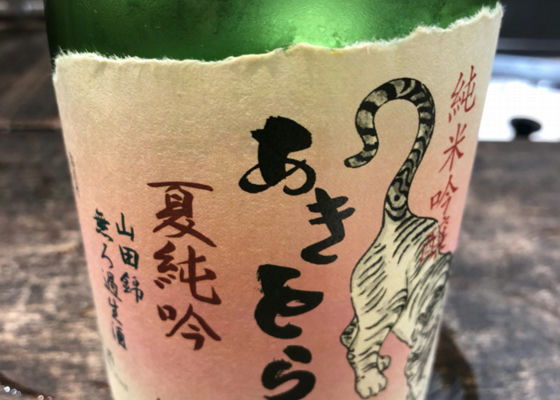 純米吟醸
あきとら
夏純吟
山田錦
無ろ過生酒